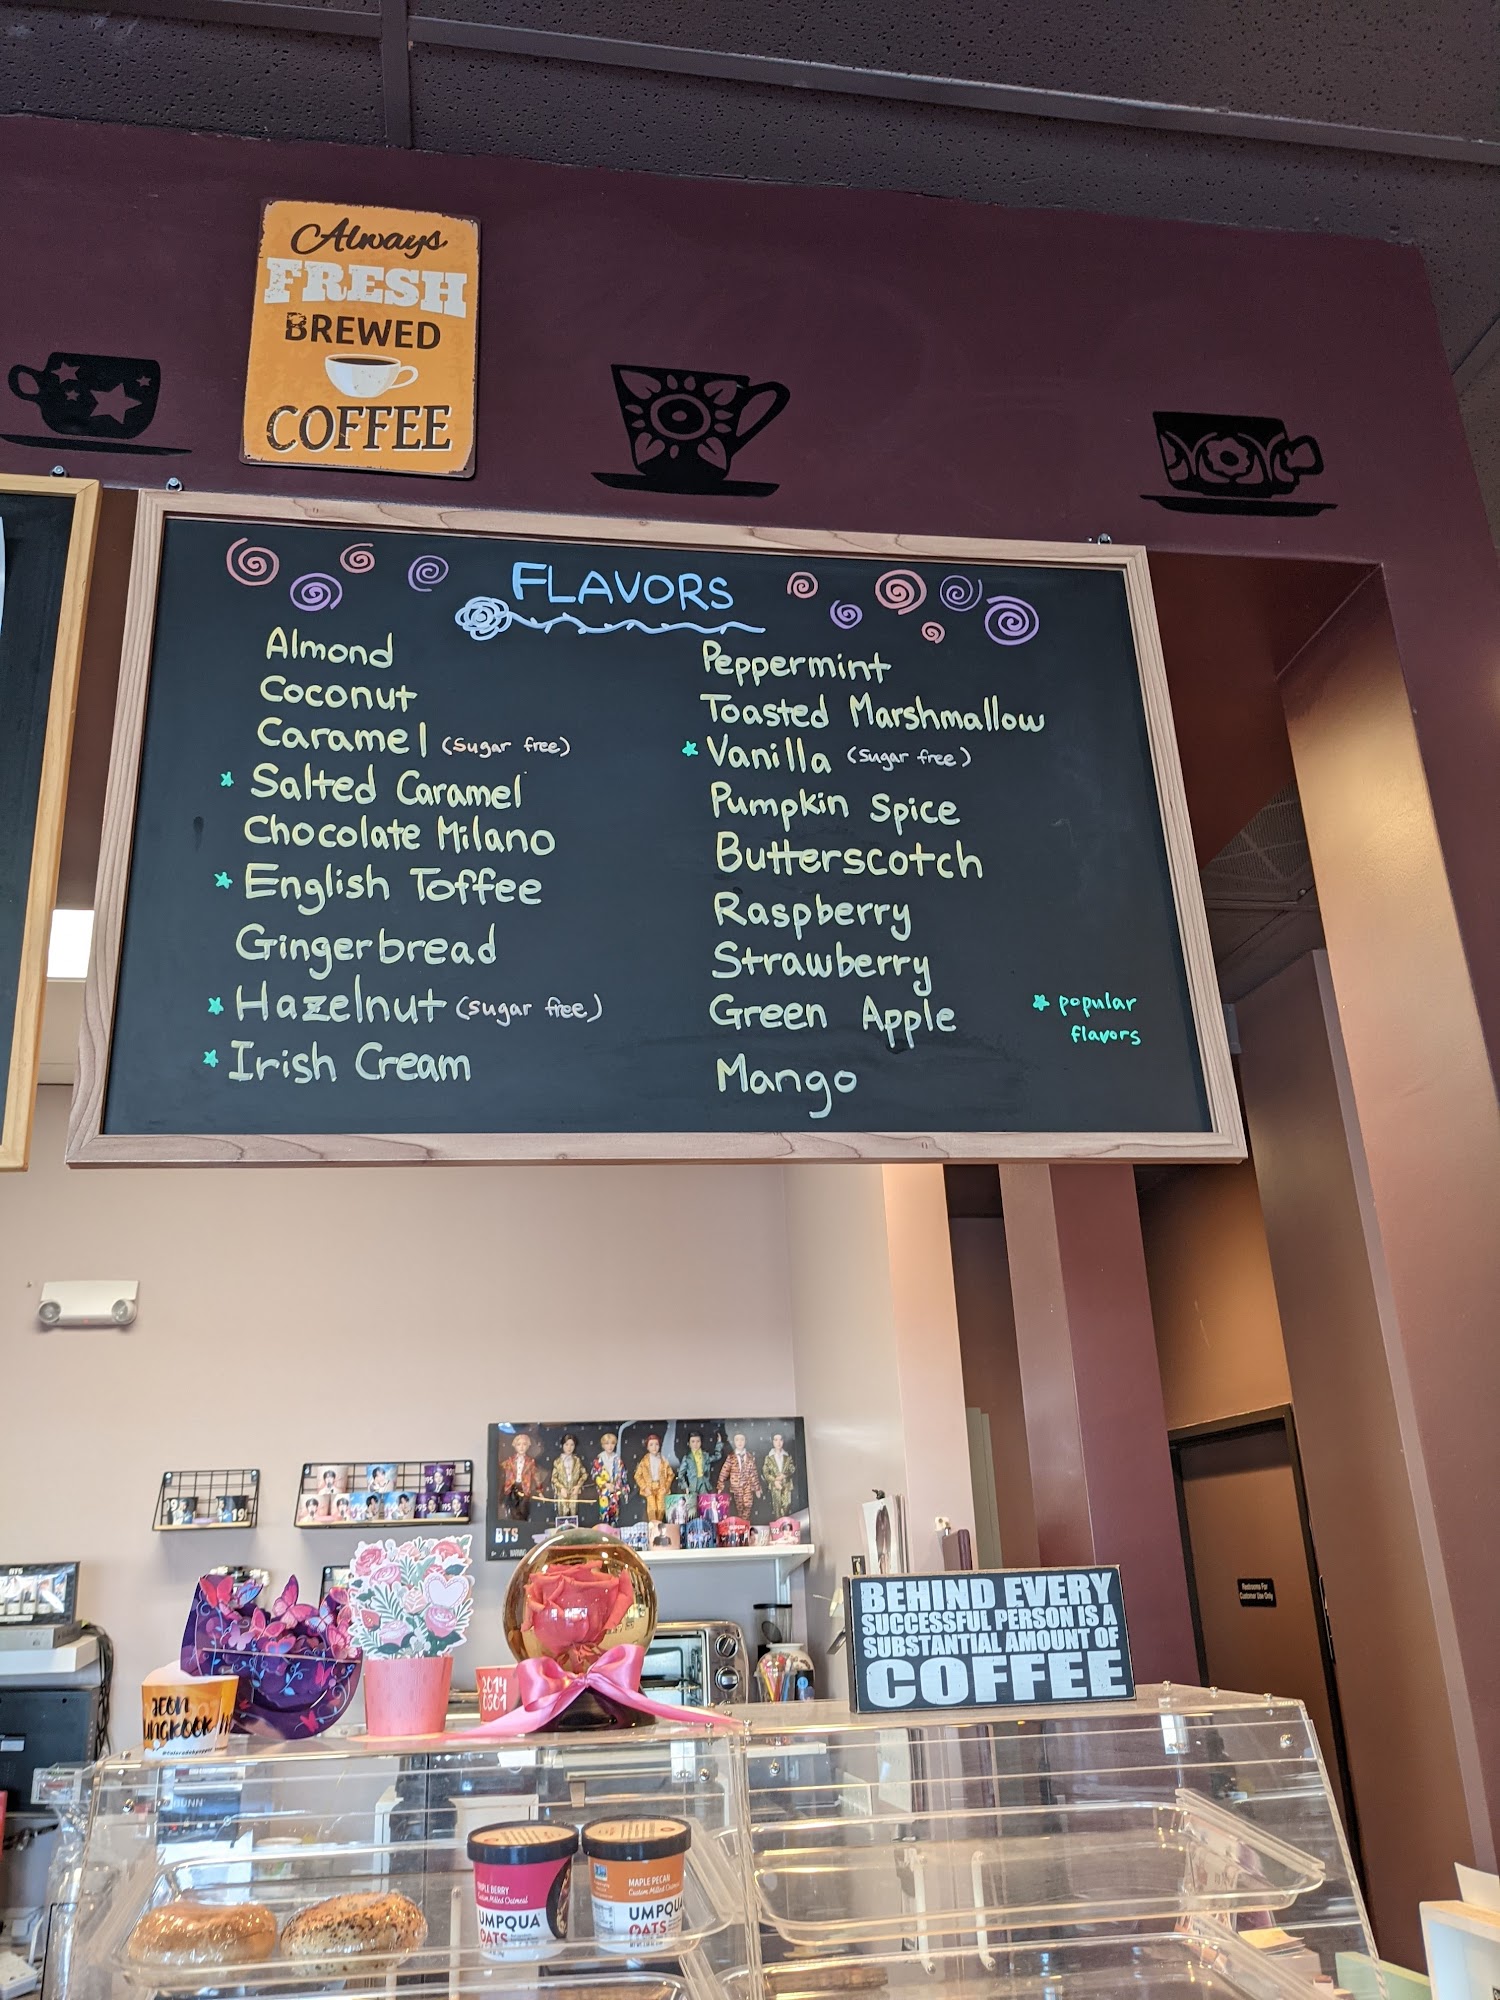 Always
FRESH
BREWED
COFFEE
FLAVORS
Almond
Coconut
Caramel (sugar free)
* Salted Caramel
Chocolate Milano
* English Toffee
Gingerbread
* Hazelnut (sugar free)
* Irish Cream
Peppermint
Toasted Marshmallow
* Vanilla (sugar free)
Pumpkin Spice
Butterscotch
Raspberry
Strawberry
Green Apple
Mango
* popular
flavors
BTS
BEHIND EVERY
SUCCESSFUL PERSON IS A
SUBSTANTIAL AMOUNT OF
COFFEE
Restrooms For
Customer Use Only
JEON
2014
0501
BUNN
MAPLE PECAN
UMPQUA
OATS
UMPQUA
OATS